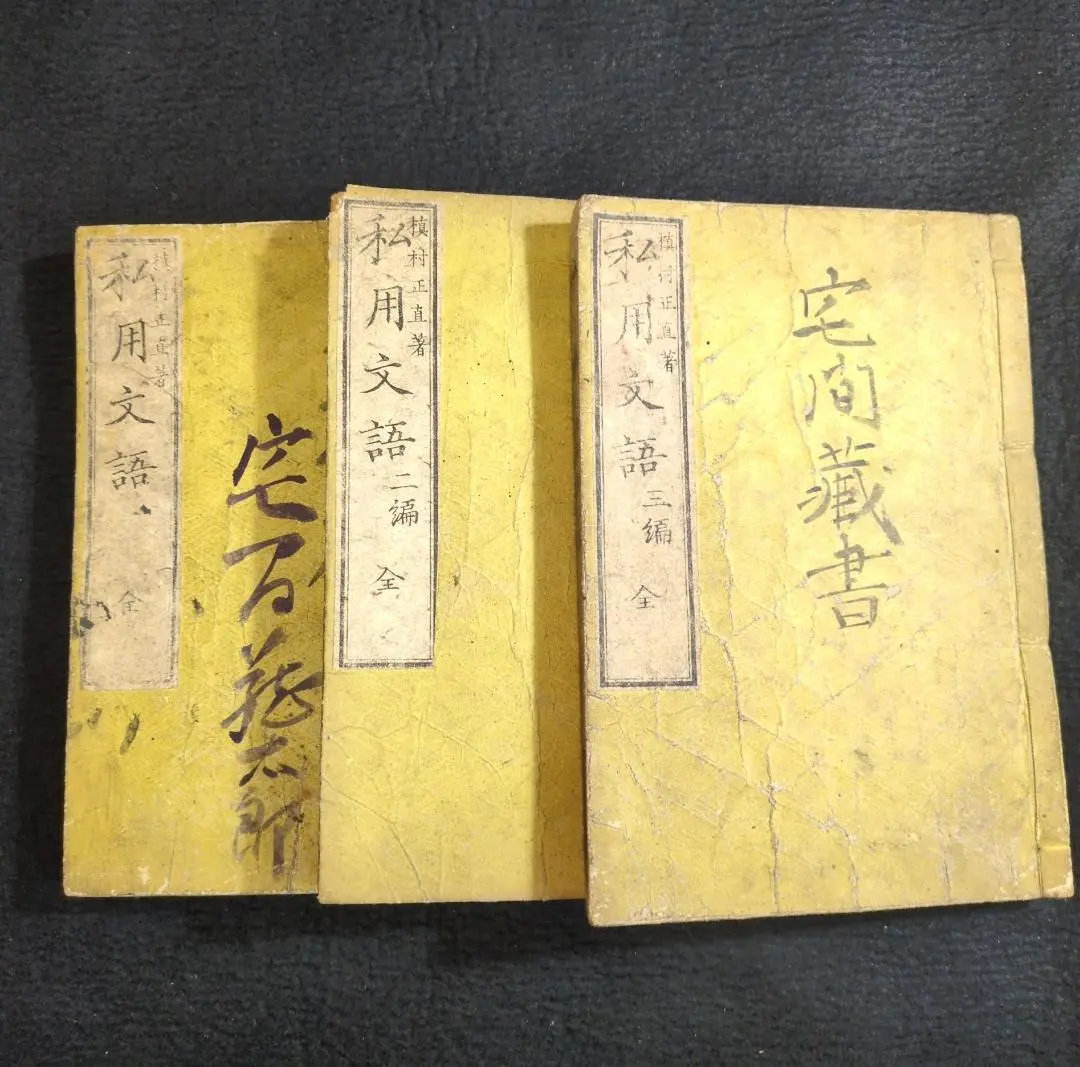 槇村正直著
私用文語 全
宅間
太郎
槇村正直著
私用文語 二編 全
槇村正直著
私用文語 三編 全
宅間藏書